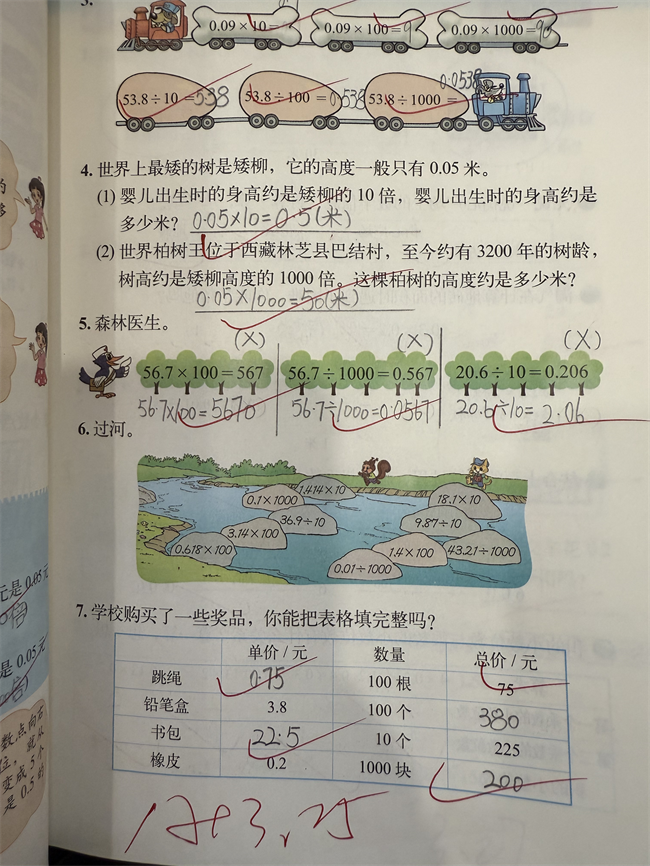 3.
0.09×10=0.9 0.09×100=9 0.09×1000=90
53.8÷10=5.38 53.8÷100=0.538 53.8÷1000=0.0538
4. 世界上最矮的树是矮柳，它的高度一般只有 0.05 米。
(1) 婴儿出生时的身高约是矮柳的 10 倍，婴儿出生时的身高约是
多少米？ 0.05×10=0.5(米)
(2) 世界柏树王位于西藏林芝县巴结村，至今约有 3200 年的树龄，
树高约是矮柳高度的 1000 倍。这棵柏树的高度约是多少米？
0.05×1000=50(米)
5. 森林医生。
(×) (×) (×)
56.7×100=567 56.7÷1000=0.567 20.6÷10=0.206
56.7×100=5670 56.7÷1000=0.0567 20.6÷10=2.06
6. 过河。
1.414×10 18.1×10
0.1×1000
36.9÷10 9.87÷10
3.14×100
0.618×100 1.4×100 43.21÷1000
0.01÷1000
7. 学校购买了一些奖品，你能把表格填完整吗？
单价/元 数量 总价/元
跳绳 0.75 100 根 75
铅笔盒 3.8 100 个 380
书包 22.5 10 个 225
橡皮 0.2 1000 块 200
元是 0.05元
是 0.05元
数点向右
位，就
变成 5 个
是 0.5 的